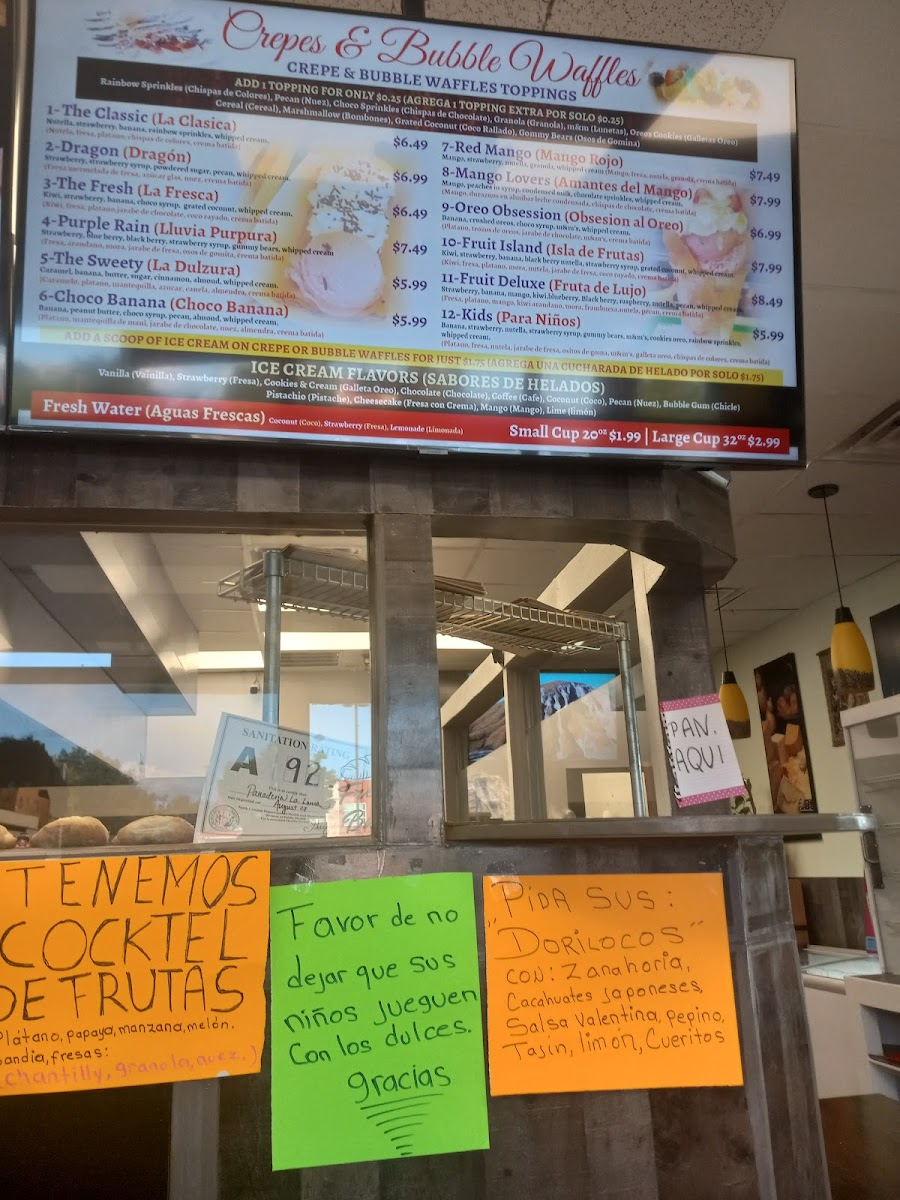 Crepes & Bubble Waffles
CREPE & BUBBLE WAFFLES TOPPINGS
ADD 1 TOPPING FOR ONLY $0.25 (AGREGA 1 TOPPING EXTRA POR SOLO $0.25)
Rainbow Sprinkles (Chispas de Colores), Pecan (Nuez), Choco Sprinkles (Chispas de Chocolate), Granola (Granola), m&m (Lunetas), Oreos Cookies (Galletas Oreo)
Cereal (Cereal), Marshmallow (Bombones), Grated Coconut (Coco Rallado), Gommy Bears (Osos de Gomina)
1-The Classic (La Clasica) $6.49
Nutella, strawberry, banana, rainbow sprinkles, whipped cream.
(Nutela, fresa, platano, chispas de colores, crema batida)
2-Dragon (Dragón) $6.99
Strawberry, strawberry syrup, powdered sugar, pecan, whipped cream.
(Fresa mermelada de fresa, azucar glas, nuez, crema batida)
3-The Fresh (La Fresca) $6.49
Kiwi, strawberry, banana, choco syrup, grated coconut, whipped cream.
(Kiwi, fresa, platano, jarabe de chocolate, coco rayado, crema batida)
4-Purple Rain (Lluvia Purpura) $7.49
Strawberry, blue berry, black berry, strawberry syrup, gummy bears, whipped cream
(Fresa, arandano, mora, jarabe de fresa, osos de gomita, crema batida)
5-The Sweety (La Dulzura) $5.99
Caramel, banana, butter, sugar, cinnamon, almond, whipped cream.
(Caramelo, platano, mantequilla, azucar, canela, almendra, crema batida)
6-Choco Banana (Choco Banana) $5.99
Banana, peanut butter, choco syrup, pecan, almond, whipped cream.
(Platano, mantequilla de mani, jarabe de chocolate, nuez, almendra, crema batida)
7-Red Mango (Mango Rojo) $7.49
Mango, strawberry, nutella, granola, whipped cream (Mango, fresa, nutela, granola, crema batida)
8-Mango Lovers (Amantes del Mango) $7.99
Mango, peaches in syrup, condensed milk, chocolate sprinkles, whipped cream.
(Mango, duraznos en almibar leche condensada, chispas de chocolate, crema batida)
9-Oreo Obsession (Obsesion al Oreo) $6.99
Banana, crushed oreos, choco syrup, m&m's, whipped cream.
(Platano, trozos de oreos, jarabe de chocolate, m&m's, crema batida)
10-Fruit Island (Isla de Frutas) $7.99
Kiwi, strawberry, banana, black berry nutella, strawberry syrup, grated coconut, whipped cream.
(Kiwi, fresa, platano, mora, nutela, jarabe de fresa, coco rayado, crema batida)
11-Fruit Deluxe (Fruta de Lujo) $8.49
Strawberry, banana, mango, kiwi,blueberry, Black berry, raspberry, nutella, pecan, whipped cream
(Fresa, platano, mango, kiwi arandano, mora, frambuesa,nutela, pecan, crema batida)
12-Kids (Para Niños) $5.99
Banana, strawberry, nutella, strawberry syrup, gummy bears, m&m's, cookies oreo, rainbow sprinkles,
whipped cream.
(Platano, fresa, nutela, jarabe de fresa, ositos de goma, m&m's, galleta oreo, chispas de colores, crema batida)
ADD A SCOOP OF ICE CREAM ON CREPE OR BUBBLE WAFFLES FOR JUST $1.75 (AGREGA UNA CUCHARADA DE HELADO POR SOLO $1.75)
ICE CREAM FLAVORS (SABORES DE HELADOS)
Vanilla (Vainilla), Strawberry (Fresa), Cookies & Cream (Galleta Oreo), Chocolate (Chocolate), Coffee (Cafe), Coconut (Coco), Pecan (Nuez), Bubble Gum (Chicle)
Pistachio (Pistache), Cheesecake (Fresa con Crema), Mango (Mango), Lime (limón)
Fresh Water (Aguas Frescas) Coconut (Coco), Strawberry (Fresa), Lemonade (Limonada) Small Cup 20oz $1.99 | Large Cup 32oz $2.99
SANITATION RATING
A 92
Panaderia La
August
PAN.
AQUI
TENEMOS
COCKTEL
DE FRUTAS
Plátano, papaya, manzana, melón.
sandía, fresas:
(chantilly, granola, nuez.)
Favor de no
dejar que sus
niños jueguen
Con los dulces.
gracias
PIDA SUS:
"DORILOCOS"
CON: Zanahoria,
Cacahuates japoneses,
Salsa Valentina, pepino,
Tajin, limón, Cueritos